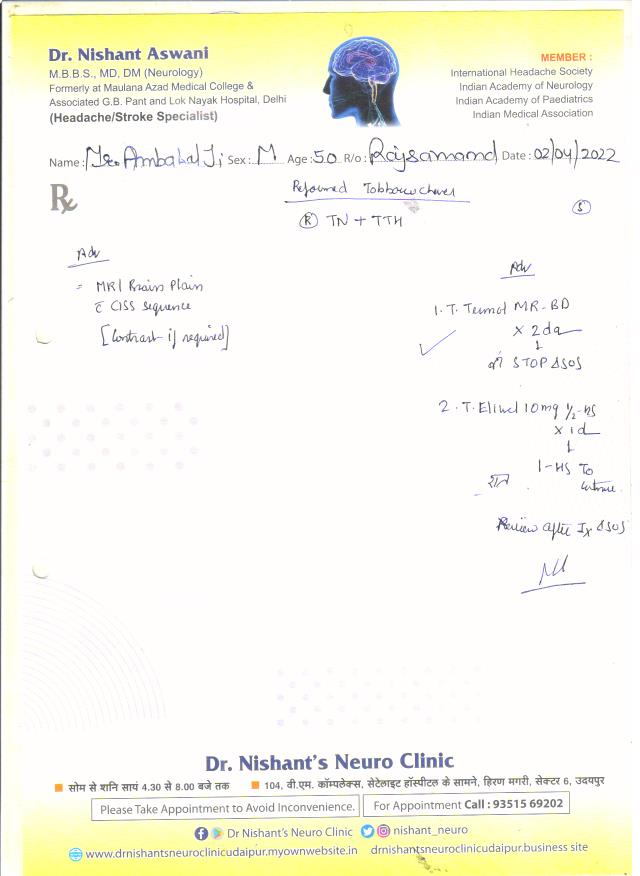 Dr. Nishant Aswani
M.B.B.S., MD, DM (Neurology)
Formerly at Maulana Azad Medical College &
Associated G.B. Pant and Lok Nayak Hospital, Delhi
(Headache/Stroke Specialist)
MEMBER :
International Headache Society
Indian Academy of Neurology
Indian Academy of Paediatrics
Indian Medical Association
Name : Ambalal Ji Sex : M Age : 50 R/o : Rajsamand Date : 02/04/2022
Rx
Reformed Tobbacco chewer
(R) TN + TTH
5
Adv
= MRI Brain Plain
c̄ CISS sequence
[Contrast if required]
Adv
1. T. MR-BD
x 2d
↓
STOP SOS
2. T. Eliwel 10mg 1/2-HS
x 1d
↓
1-HS To
continue
रात
Review after Ix SOS
Dr. Nishant's Neuro Clinic
सोम से शनि सायं 4.30 से 8.00 बजे तक
104, वी.एम. कॉम्पलेक्स, सेटेलाइट हॉस्पीटल के सामने, हिरण मगरी, सेक्टर 6, उदयपुर
Please Take Appointment to Avoid Inconvenience.
For Appointment Call : 93515 69202
Dr Nishant's Neuro Clinic nishant_neuro
www.drnishantsneuroclinicudaipur.myownwebsite.in drnishantsneuroclinicudaipur.business site